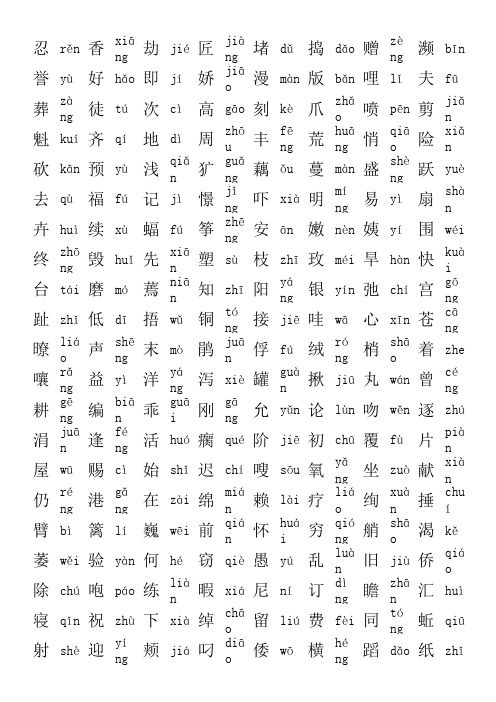 忍 rěn 香 xiāng 劫 jié 匠 jiàng 堵 dǔ 捣 dǎo 赠 zèng 濒 bīn
誉 yù 好 hǎo 即 jí 娇 jiāo 漫 màn 版 bǎn 哩 lǐ 夫 fū
葬 zàng 徒 tú 次 cì 高 gāo 刻 kè 爪 zhǎo 喷 pēn 剪 jiǎn
魁 kuí 齐 qí 地 dì 周 zhōu 丰 fēng 荒 huāng 悄 qiāo 险 xiǎn
砍 kǎn 预 yù 浅 qiǎn 犷 guǎng 藕 ǒu 蔓 màn 盛 shèng 跃 yuè
去 qù 福 fú 记 jì 憬 jǐng 吓 xià 明 míng 易 yì 扇 shàn
卉 huì 续 xù 蝠 fú 筝 zhēng 安 ān 嫩 nèn 姨 yí 围 wéi
终 zhōng 毁 huǐ 先 xiān 塑 sù 枝 zhī 玫 méi 旱 hàn 快 kuài
台 tái 磨 mó 蔫 niān 知 zhī 阳 yáng 银 yín 弛 chí 宫 gōng
趾 zhǐ 低 dī 捂 wǔ 铜 tóng 接 jiē 哇 wā 心 xīn 苍 cāng
嘹 liáo 声 shēng 末 mò 鹃 juān 俘 fú 绒 róng 梢 shāo 着 zhe
嚷 rǎng 益 yì 洋 yáng 泻 xiè 罐 guàn 揪 jiū 丸 wán 曾 céng
耕 gēng 编 biān 乖 guāi 刚 gāng 允 yǔn 论 lùn 吻 wěn 逐 zhú
涓 juān 逢 féng 活 huó 瘸 qué 阶 jiē 初 chū 覆 fù 片 piàn
屋 wū 赐 cì 始 shǐ 迟 chí 嗖 sōu 氧 yǎng 坐 zuò 献 xiàn
仍 réng 港 gǎng 在 zài 绵 mián 赖 lài 疗 liáo 绚 xuàn 捶 chuí
臂 bì 篱 lí 巍 wēi 前 qián 怀 huái 穷 qióng 艄 shāo 渴 kě
萎 wěi 验 yàn 何 hé 窃 qiè 愚 yú 乱 luàn 旧 jiù 侨 qiáo
除 chú 咆 páo 练 liàn 暇 xiá 尼 ní 订 dìng 瞻 zhān 汇 huì
寝 qǐn 祝 zhù 下 xià 绰 chāo 留 liú 费 fèi 同 tóng 蚯 qiū
射 shè 迎 yíng 颊 jiá 叼 diāo 倭 wō 横 héng 蹈 dǎo 纸 zhǐ